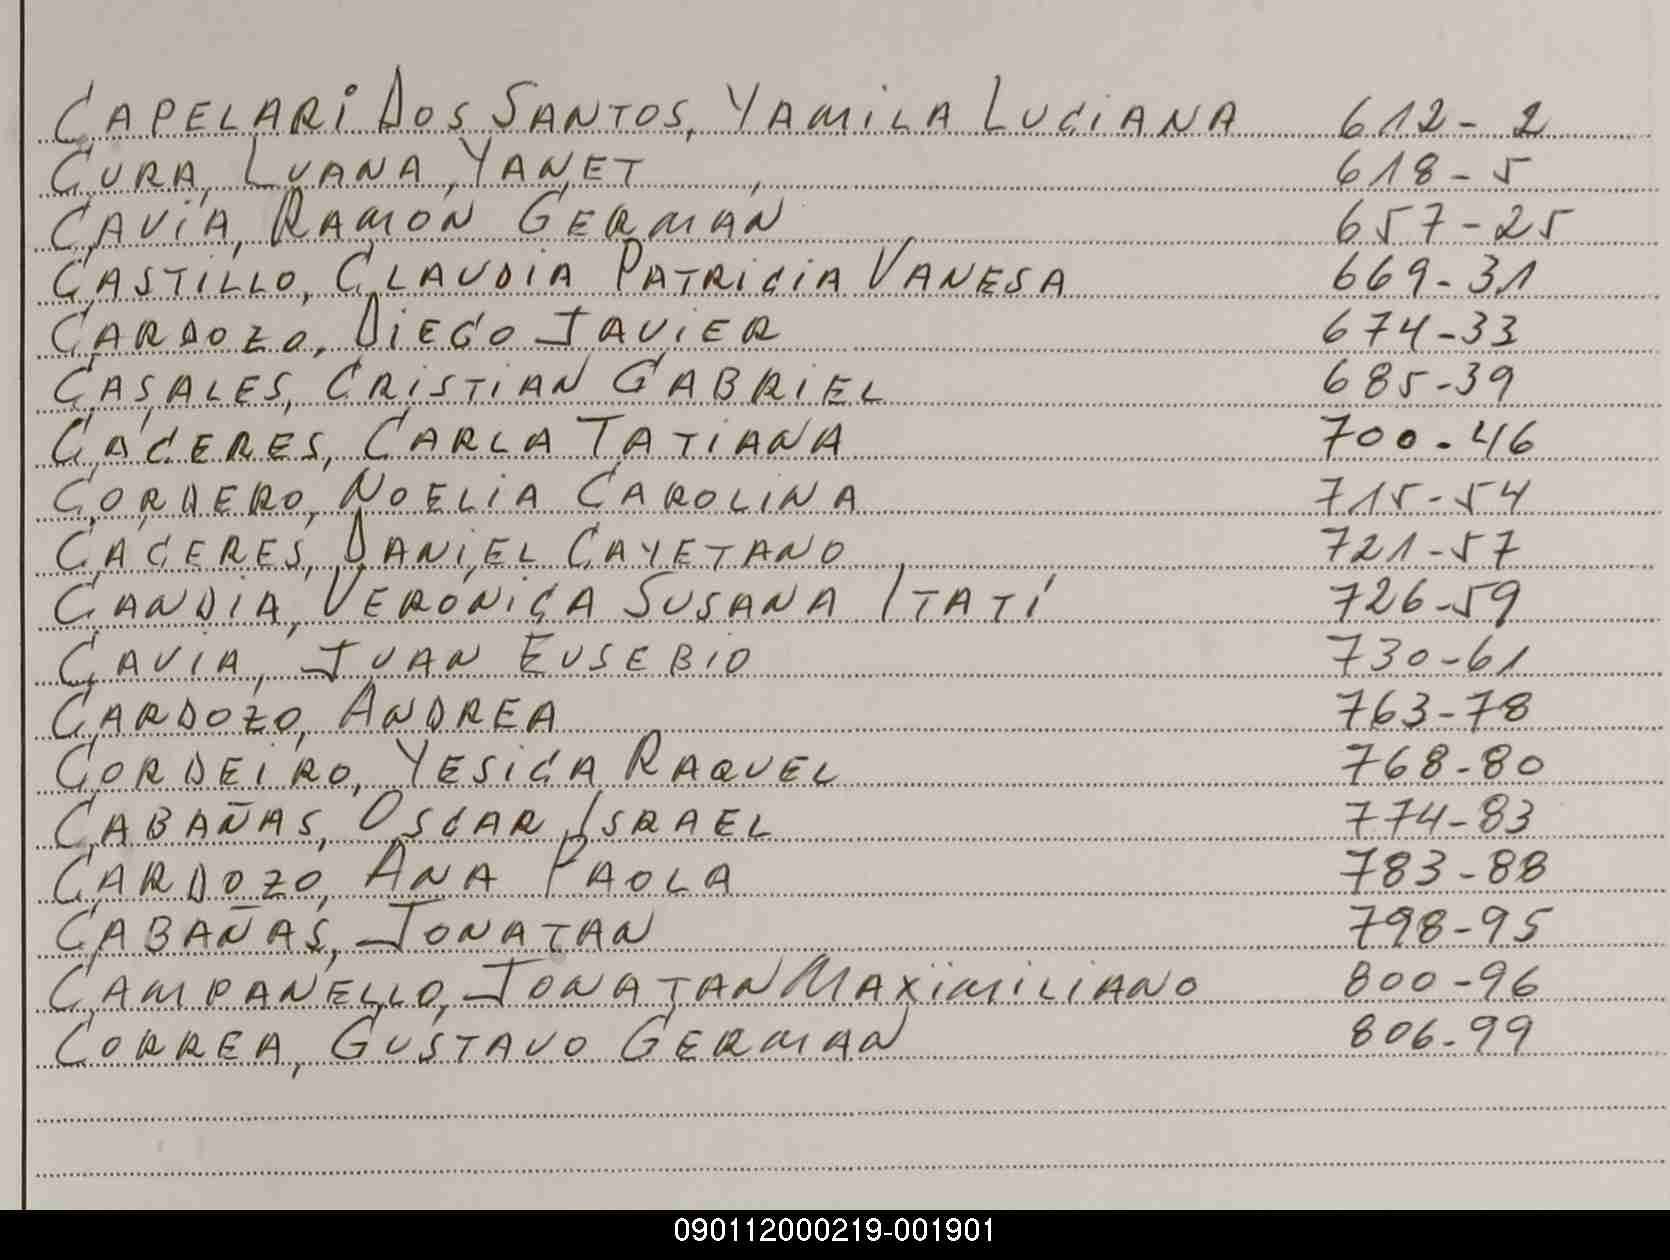 CAPELARI DOS SANTOS, YAMILA LUCIANA 612-2
CURA, LUANA YANET 618-5
CAVIA, RAMÓN GERMAN 657-25
CASTILLO, CLAUDIA PATRICIA VANESA 669-31
CARDOZO, DIEGO JAVIER 674-33
CASALES, CRISTIAN GABRIEL 685-39
CACERES, CARLA TATIANA 700-46
CORDERO, NOELIA CAROLINA 715-54
CACERES, DANIEL CAYETANO 721-57
CANDIA, VERONICA SUSANA ITATÍ 726-59
CAVIA, JUAN EUSEBIO 730-61
CARDOZO, ANDREA 763-78
CORDEIRO, YESICA RAQUEL 768-80
CABAÑAS, OSCAR ISRAEL 774-83
CARDOZO, ANA PAOLA 783-88
CABAÑAS, JONATAN 798-95
CAMPANELLO, JONATAN MAXIMILIANO 800-96
CORREA, GUSTAVO GERMAN 806-99
090112000219-001901